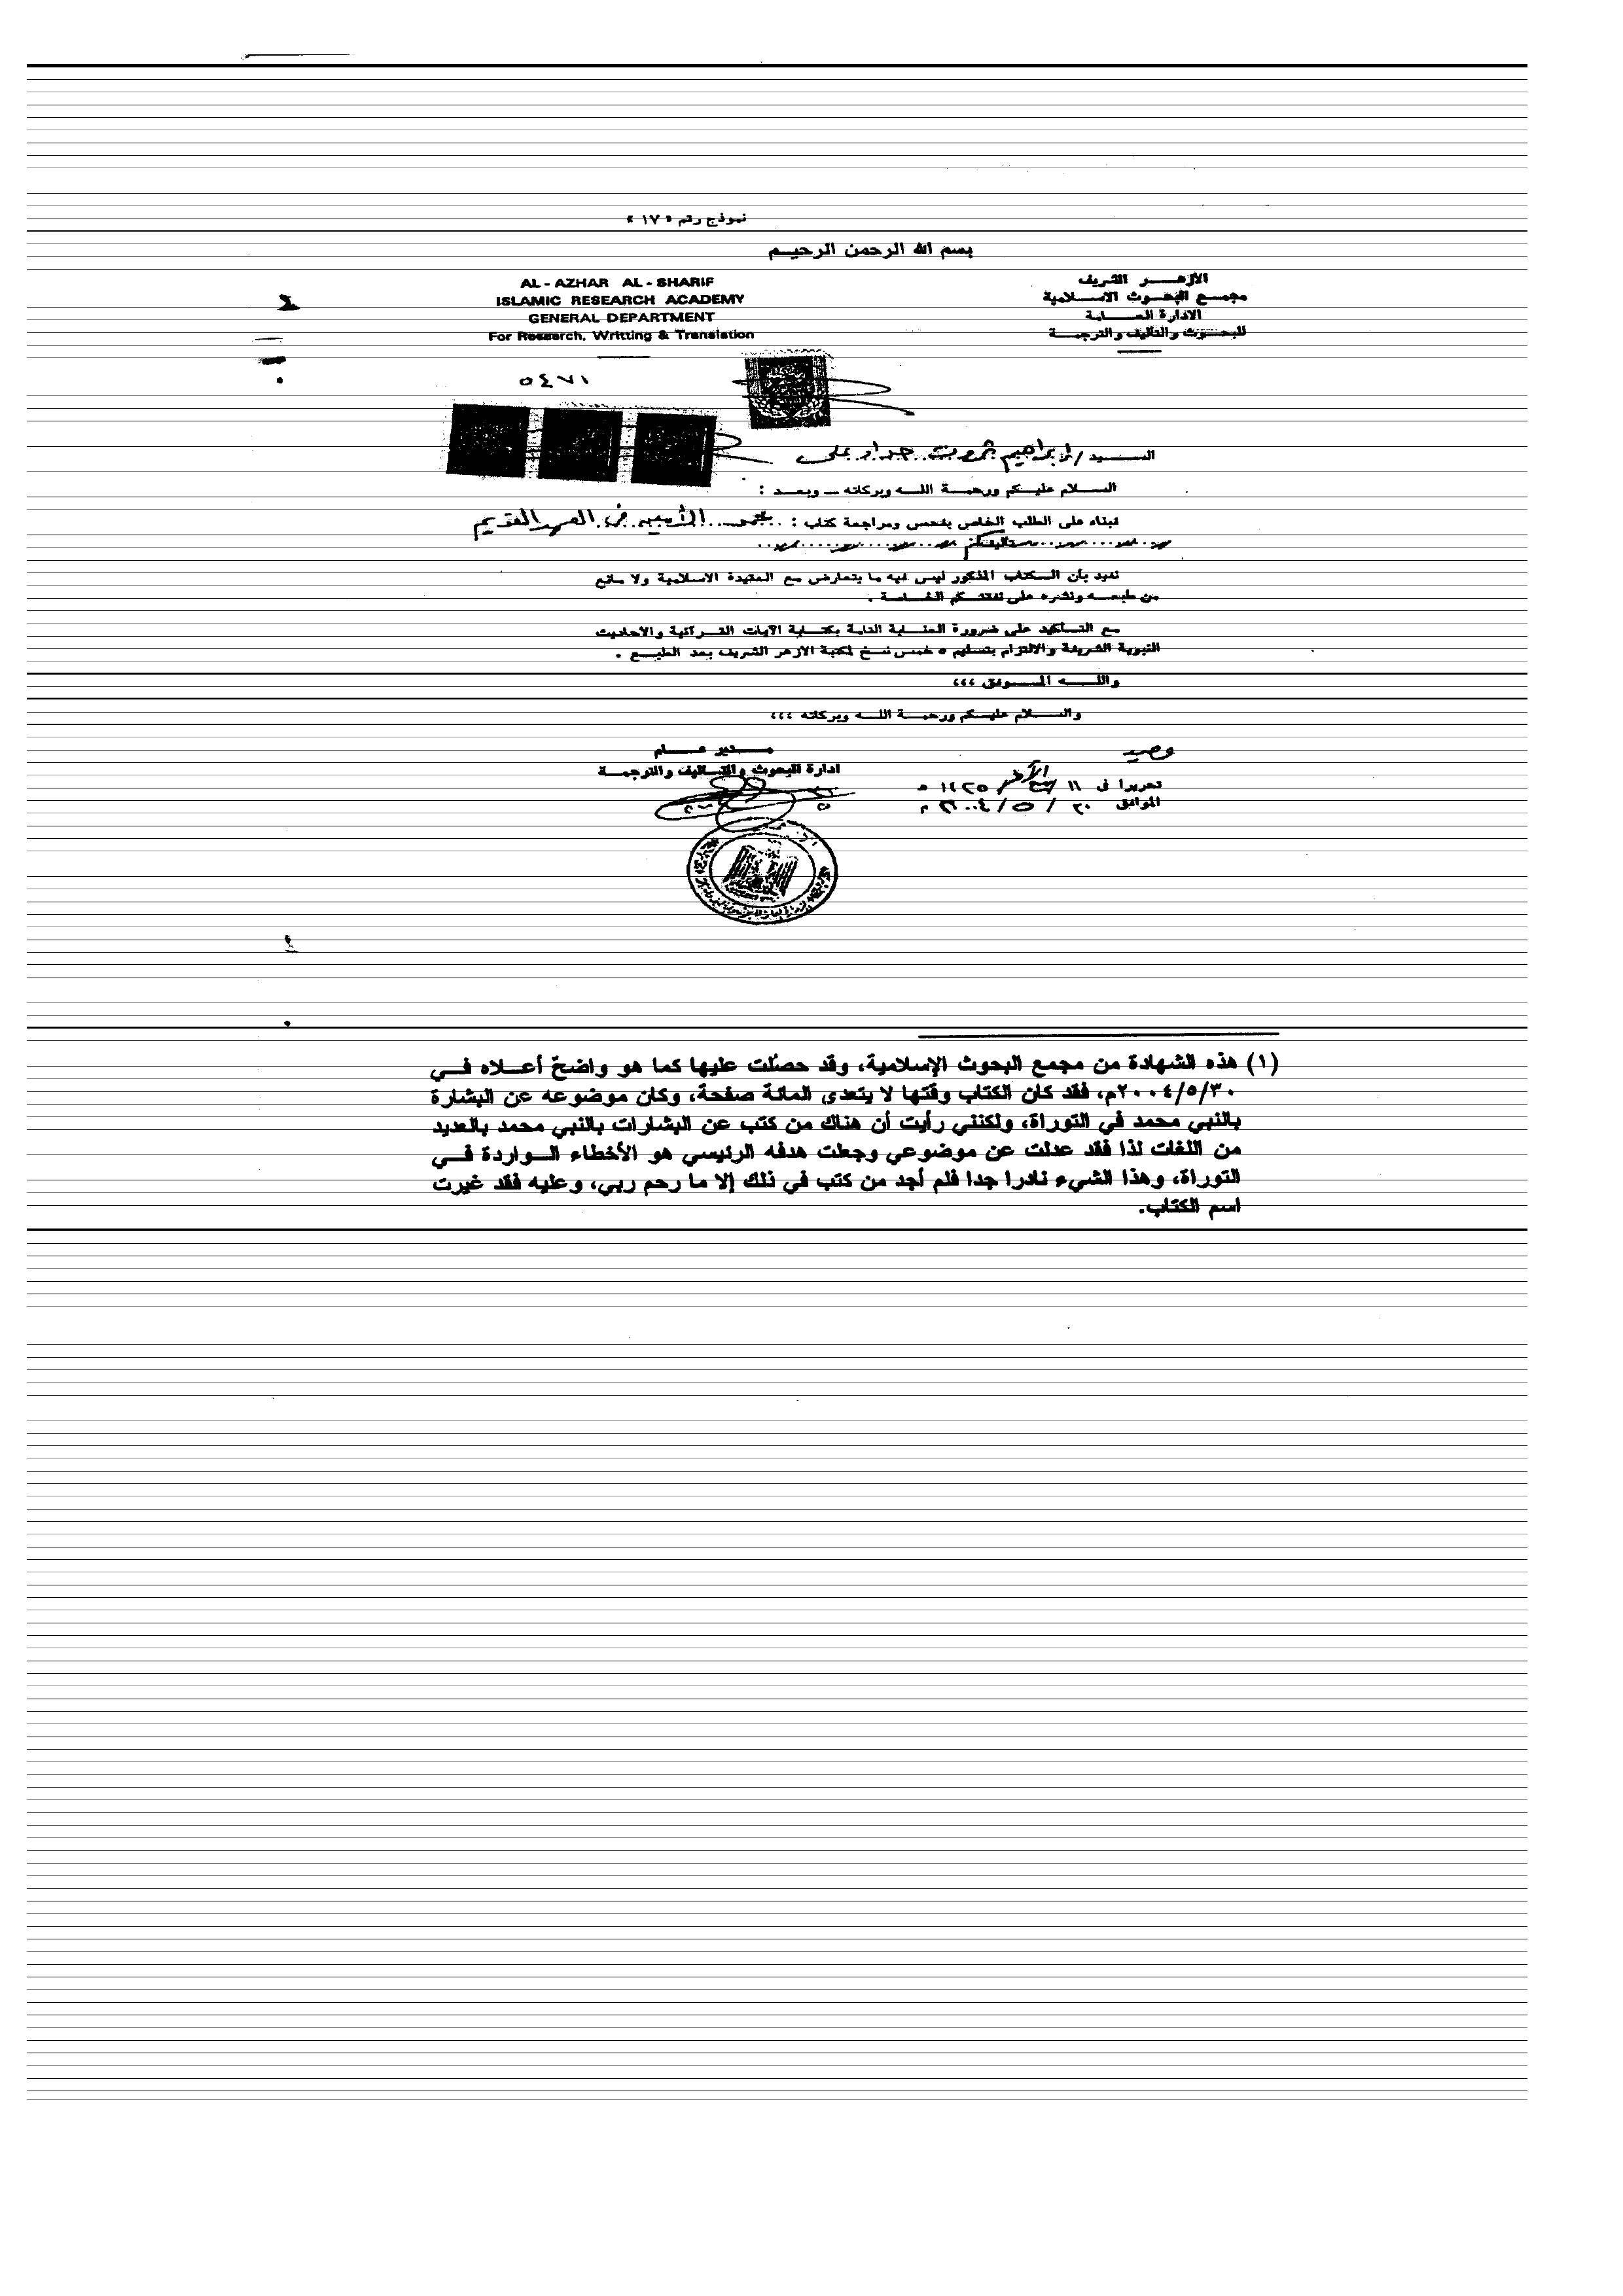 نموذج رقم « ١٧ »
بسم الله الرحمن الرحيم
الأزهر الشريف
مجمع البحوث الاسلامية
الادارة العامة
للبحوث والتأليف والترجمة
AL - AZHAR AL - SHARIF
ISLAMIC RESEARCH ACADEMY
GENERAL DEPARTMENT
For Research, Writting & Translation
٥٤٧١
السيد / إبراهيم ثروت على
السلام عليكم ورحمة الله وبركاته – وبعد :
فبناء على الطلب الخاص بفحص ومراجعة كتاب : محمد الأمين في العهد القديم
تأليفكم
نفيد بأن الكتاب المذكور ليس فيه ما يتعارض مع العقيدة الاسلامية ولا مانع
من طبعه ونشره على نفقتكم الخاصة .
مع التأكيد على ضرورة العناية التامة بكتابة الآيات القرآنية والأحاديث
النبوية الشريفة والالتزام بتسليم ٥ خمس نسخ لمكتبة الأزهر الشريف بعد الطبع .
والله الموفق ،،،
والسلام عليكم ورحمة الله وبركاته ،،،
مدير عام
ادارة البحوث والتأليف والترجمة
تحريرا فى ١١ ربيع الآخر / ١٤٢٥ هـ
الموافق ٣٠ / ٥ / ٢٠٠٤ م
(١) هذه الشهادة من مجمع البحوث الإسلامية، وقد حصلت عليها كما هو واضح أعلاه في
٢٠٠٤/٥/٣٠م، فقد كان الكتاب وقتها لا يتعدى المائة صفحة، وكان موضوعه عن البشارة
بالنبي محمد في التوراة، ولكنني رأيت أن هناك من كتب عن البشارات بالنبي محمد بالعديد
من اللغات لذا فقد عدلت عن موضوعي وجعلت هدفه الرئيسي هو الأخطاء الواردة في
التوراة، وهذا الشيء نادرا جدا فلم أجد من كتب في ذلك إلا ما رحم ربي، وعليه فقد غيرت
اسم الكتاب.